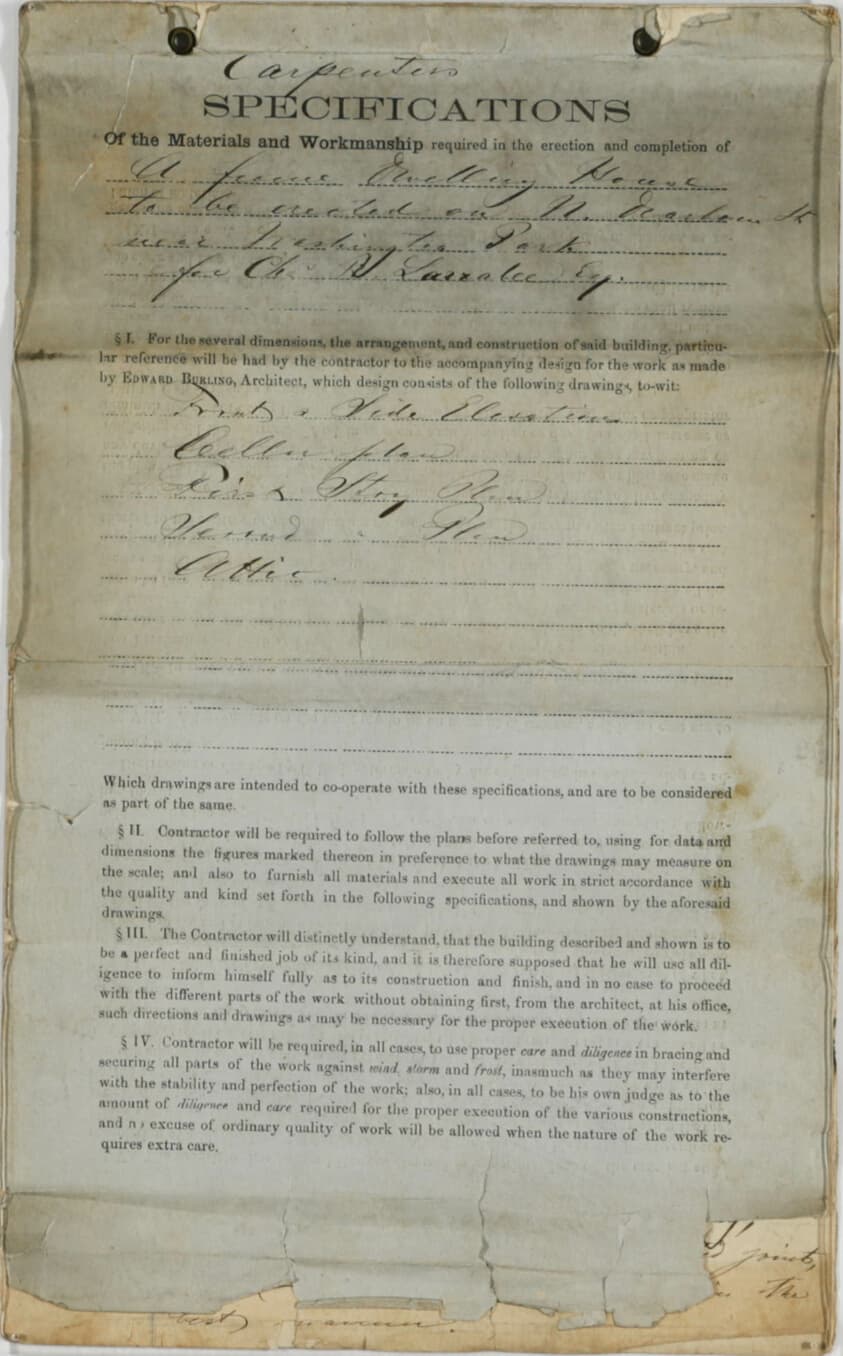 Carpenters
SPECIFICATIONS
Of the Materials and Workmanship required in the erection and completion of
A frame Dwelling House
to be erected on N. Dearborn St
near Washington Park
for Chs R. Larrabee Esq.
§ I. For the several dimensions, the arrangement, and construction of said building, particu-
lar reference will be had by the contractor to the accompanying design for the work as made
by EDWARD BURLING, Architect, which design consists of the following drawings, to-wit:
Front & Side Elevations
Cellar plan
First Story Plan
Second " Plan
Attic
Which drawings are intended to co-operate with these specifications, and are to be considered
as part of the same.
§ II. Contractor will be required to follow the plans before referred to, using for data and
dimensions the figures marked thereon in preference to what the drawings may measure on
the scale; and also to furnish all materials and execute all work in strict accordance with
the quality and kind set forth in the following specifications, and shown by the aforesaid
drawings.
§ III. The Contractor will distinctly understand, that the building described and shown is to
be a perfect and finished job of its kind, and it is therefore supposed that he will use all dil-
igence to inform himself fully as to its construction and finish, and in no case to proceed
with the different parts of the work without obtaining first, from the architect, at his office,
such directions and drawings as may be necessary for the proper execution of the work.
§ IV. Contractor will be required, in all cases, to use proper care and diligence in bracing and
securing all parts of the work against wind, storm and frost, inasmuch as they may interfere
with the stability and perfection of the work; also, in all cases, to be his own judge as to the
amount of diligence and care required for the proper execution of the various constructions,
and no excuse of ordinary quality of work will be allowed when the nature of the work re-
quires extra care.
joints,
in the
best manner.